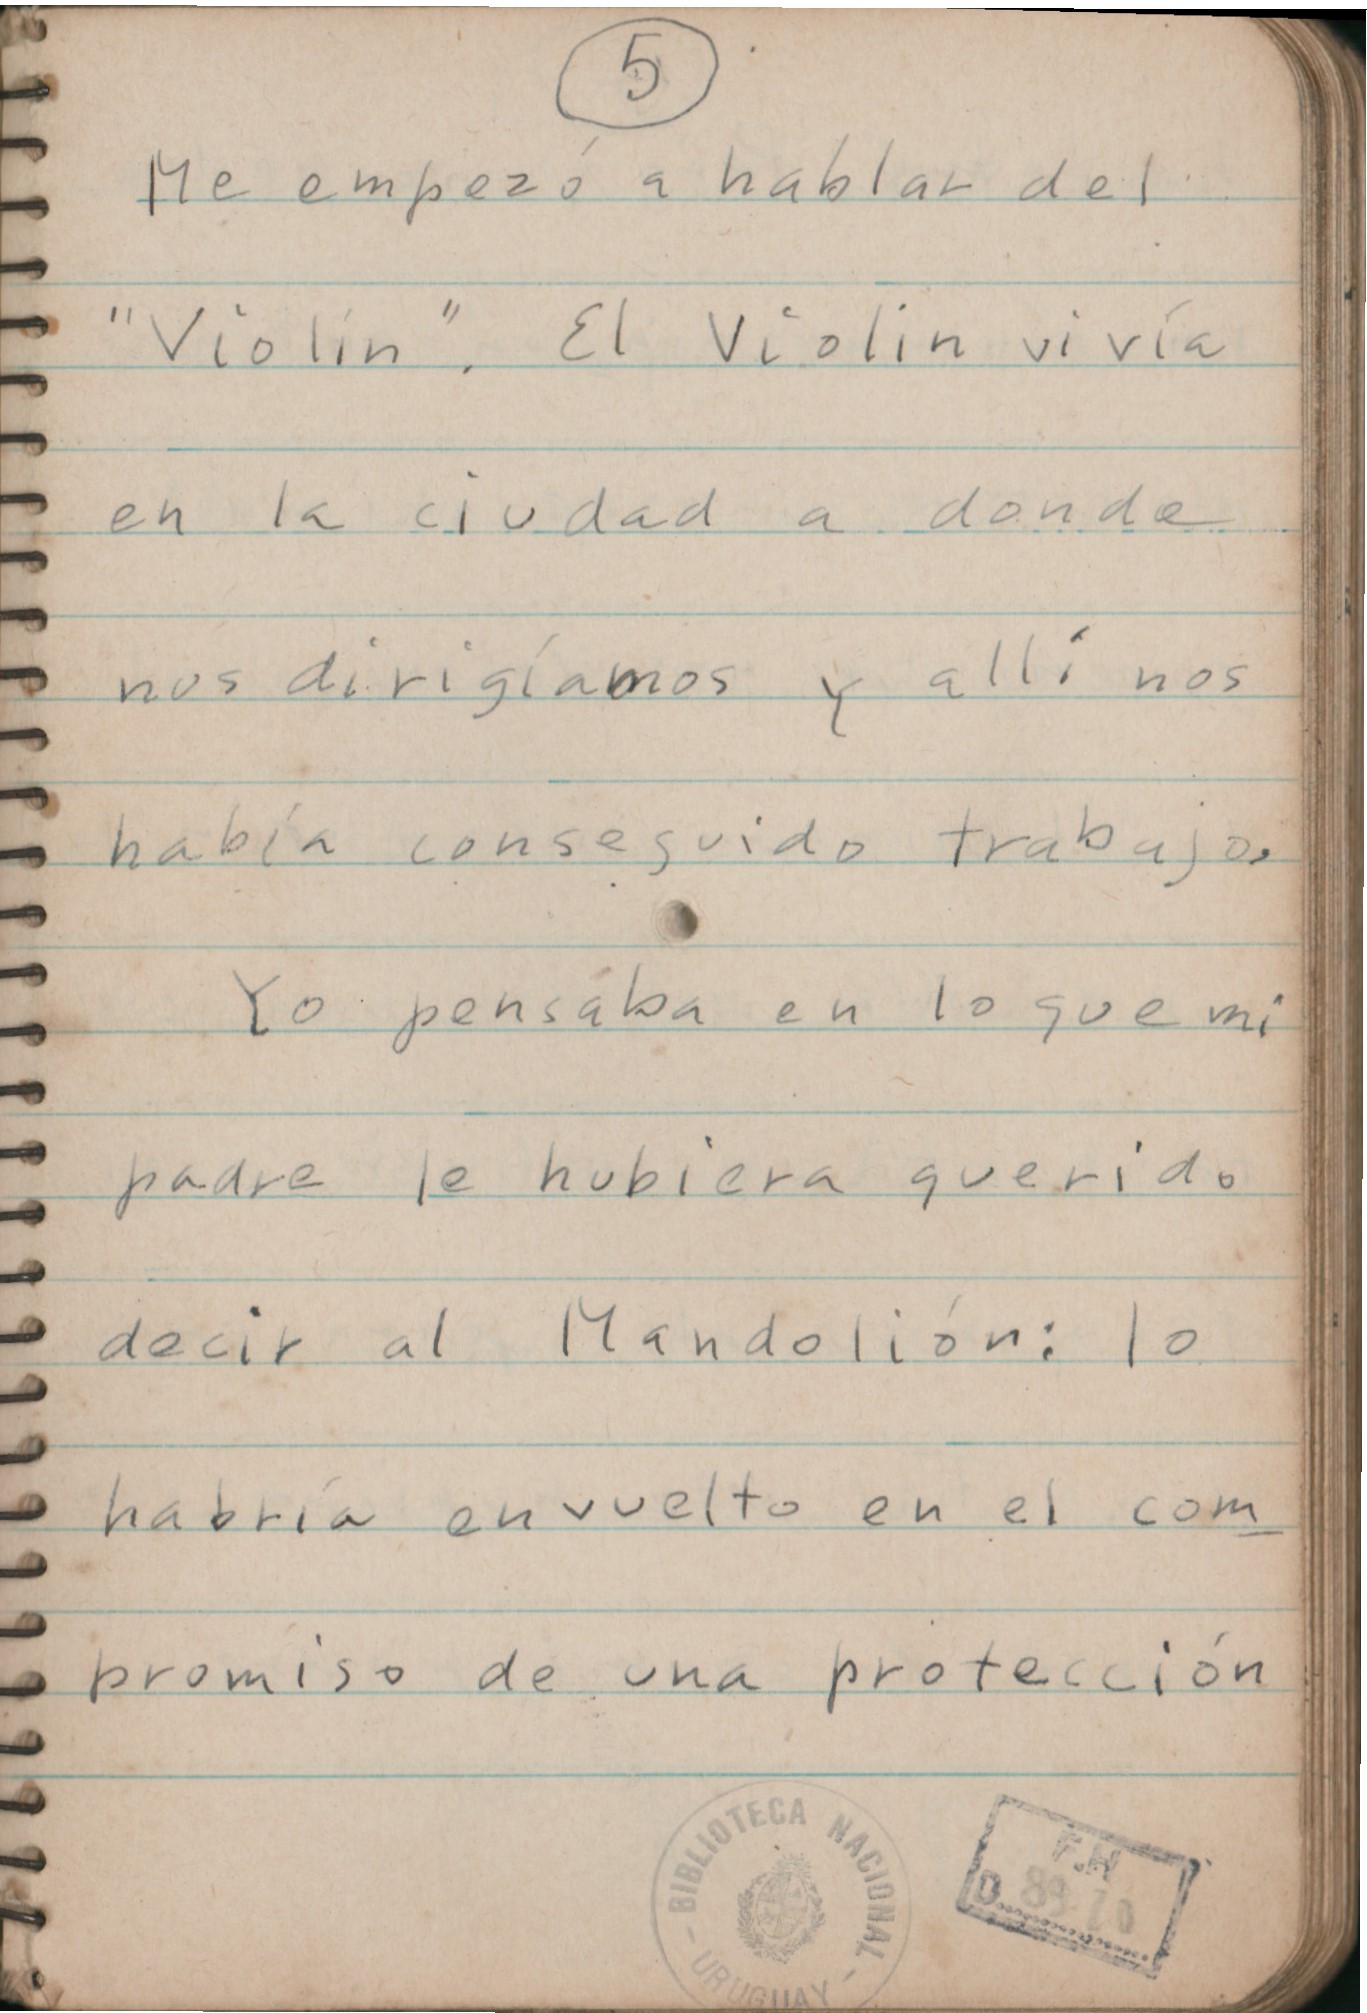 5
Me empezó a hablar del
"Violín". El Violin vivía
en la ciudad a donde
nos dirigíamos y allí nos
había conseguido trabajo.
Yo pensaba en lo que mi
padre le hubiera querido
decir al Mandolión: lo
habría envuelto en el com
promiso de una protección
BIBLIOTECA NACIONAL
- URUGUAY -
F.H
D.